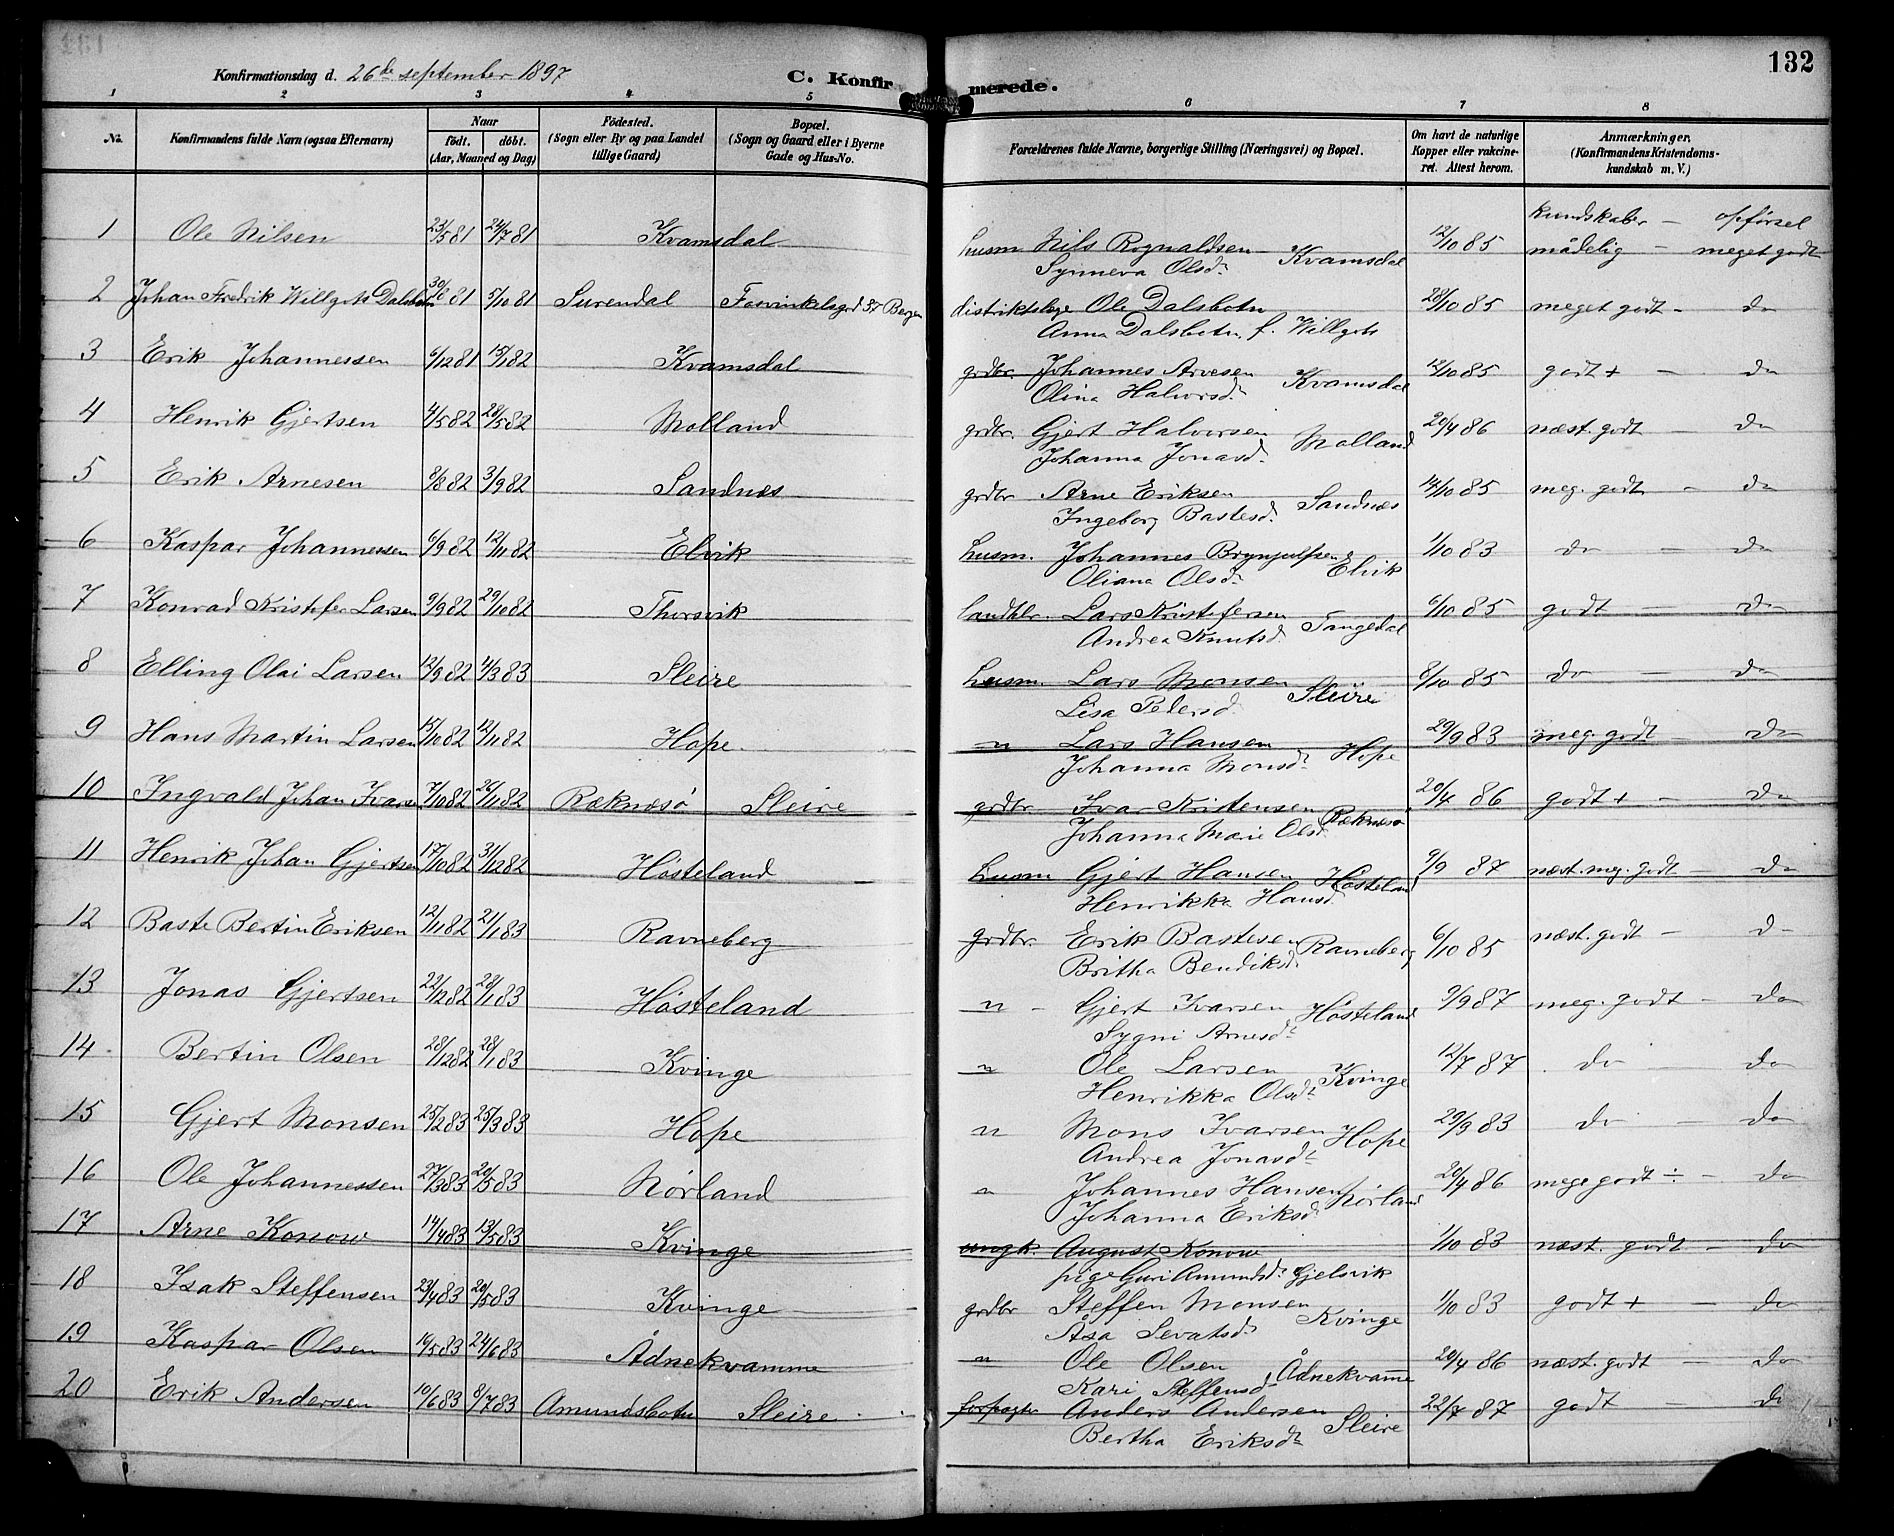 132
Konfirmationsdag d. 26de september 1897
C. Konfirmerede.
1 2 3 4 5 6 7 8
No. Konfirmandens fulde Navn (ogsaa Efternavn) Naar født. døbt. (Aar, Maaned og Dag) Fødested. (Sogn eller By og paa Landet tillige Gaard) Bopæl. (Sogn og Gaard eller i Byerne Gade og Hus-No. Forældrenes fulde Navne, borgerlige Stilling (Næringsvei) og Bopæl. Om havt de naturlige Kopper eller vakcineret. Attest herom. Anmærkninger. (Konfirmandens Kristendomskundskab m. V.)
kundskaber - opførsel
1 Ole Nilsen 23/5 81 24/7 81 Kvamsdal husm Nils Rognaldsen Kvamsdal 12/10 85 mådelig - meget godt
Synneva Olsdr
2 Johan Fredrik Willgots Dalsbotn 30/8 81 5/10 81 Surendal 37 Bergen distriktslæge Ole Dalsbotn 28/10 85 meget godt - do
Anna Dalsbotn, f. Willgots
3 Erik Johannessen 6/12 81 15/1 82 Kvamsdal grdbr. Johannes Arvesen Kvamsdal 12/10 85 godt + - do
Olina Halvorsd.
4 Henrik Gjertsen 4/5 82 28/5 82 Molland grdbr. Gjert Halvorsen Molland 20/4 86 næst. godt - do
Johanna Jonasd.
5 Erik Arnesen 8/8 82 3/9 82 Sandnes grdbr Arne Eriksen Sandnæs 14/10 85 meg. godt - do
Ingeborg Bastesd.
6 Kaspar Johannessen 6/9 82 12/11 82 Elvik husm. Johannes Brynjulfsen Elvik 1/10 83 do - do
Oliana Olsdr
7 Konrad Kristofer Larsen 9/9 82 29/10 82 Thorsvik landhlr. Lars Kristofersen Tangedal 6/10 85 godt - do
Andrea Knutsd.
8 Elling Olai Larsen 12/9 82 4/3 83 Sleire husm. Lars Monsen Sleire 8/10 85 do - do
Lisa Pedersd.
9 Hans Martin Larsen 15/10 82 12/11 82 Hope " Lars Hansen Hope 29/9 83 meg. godt - do
Johanna Monsdr
10 Ingvald Johan Ivarsen 7/10 82 26/11 82 Ræknæsø Sleire grdbr. Ivar Kristensen Ræknæsø 20/4 86 godt + - do
Johanna Marie Olsd.
11 Henrik Johan Gjertsen 17/10 82 31/12 82 Høsteland husm Gjert Hansen Høsteland 9/9 87 næst. meg. godt - do
Henrikka Hansd.
12 Baste Bertin Eriksen 12/11 82 21/1 83 Ravneberg grdbr. Erik Bastesen Ravneberg 6/10 85 næst. godt - do
Britha Bendiksd.
13 Jonas Gjertsen 22/12 82 28/1 83 Høsteland " - Gjert Ivarsen Høsteland 9/9 87 meg. godt - do
Sygni Arnesdr
14 Bertin Olsen 28/12 82 28/1 83 Kvinge " Ole Larsen Kvinge 12/7 87 do - do
Henrikka Olsdr
15 Gjert Monsen 25/2 83 25/3 83 Hope " Mons Ivarsen Hope 29/9 83 do - do
Andrea Jonasdr
16 Ole Johannessen 27/3 83 20/5 83 Nørland " Johannes Hansen Nørland 20/4 86 mege godt ÷ - do
Johanna Eriksdr
17 Arne Konow 14/4 83 13/5 83 Kvinge ungk. August Konow 1/10 83 næst. godt - do
pige Guri Amundsdr Gjelsvik
18 Isak Steffensen 23/4 83 20/5 83 Kvinge grdbr Steffen Monsen Kvinge 1/10 83 godt + - do
Åsa Sevatsdr
19 Kaspar Olsen 19/5 83 24/6 83 Ådnekvamme " Ole Olsen Ådnekvam̅e 20/4 86 næst. godt - do
Kari Steffensdr
20 Erik Andersen 10/6 83 8/7 83 Amundsbotn Sleire forpagtr Anders Andersen Sleire 22/7 87 godt - do
Bertha Eriksdr